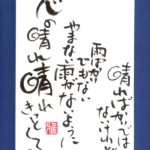 晴ればかりでは
ないけれど
雨ばかり
でもない
やまない雨がないように
心の晴れ晴れ
きっとくる